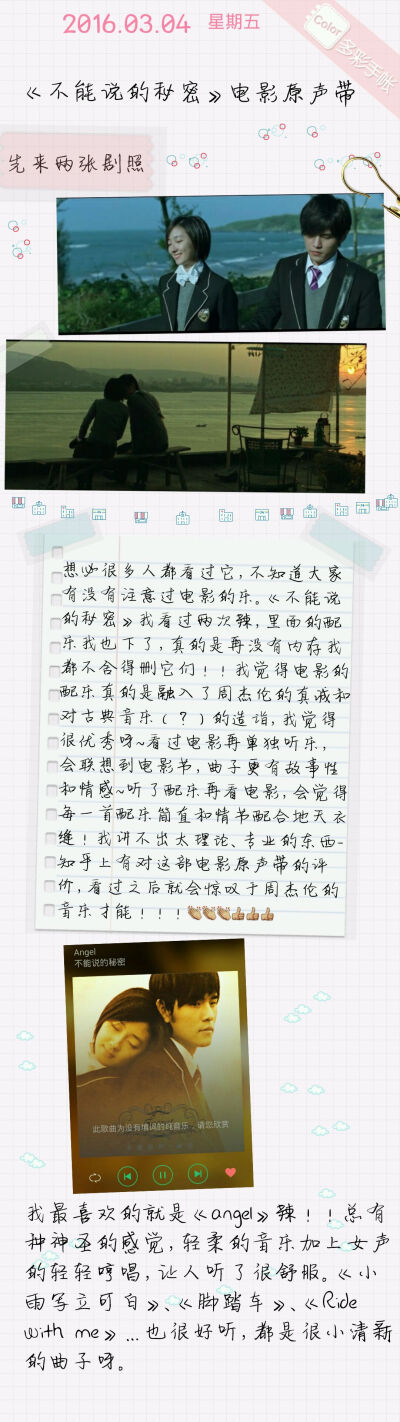 2016.03.04 星期五
Color
多彩手帐
《不能说的秘密》电影原声带
先来两张剧照
想必很多人都看过它,不知道大家
有没有注意过电影的乐。《不能说
的秘密》我看过两次辣,里面的配
乐我也下了,真的是再没有内存我
都不舍得删它们!!我觉得电影的
配乐真的是融入了周杰伦的真诚和
对古典音乐(?)的造诣,我觉得
很优秀呀~看过电影再单独听乐,
会联想到电影节,曲子更有故事性
和情感~听了配乐再看电影,会觉得
每一首配乐简直和情节配合地天衣
缝!我讲不出太理论、专业的东西-
知乎上有对这部电影原声带的评
价,看过之后就会惊叹于周杰伦的
音乐才能!!!
Angel
不能说的秘密
此歌曲为没有填词的纯音乐,请您欣赏
我最喜欢的就是《angel》辣!!总有
种神圣的感觉,轻柔的音乐加上女声
的轻轻哼唱,让人听了很舒服。《小
雨写立可白》、《脚踏车》、《Ride
with me》...也很好听,都是很小清新
的曲子呀。